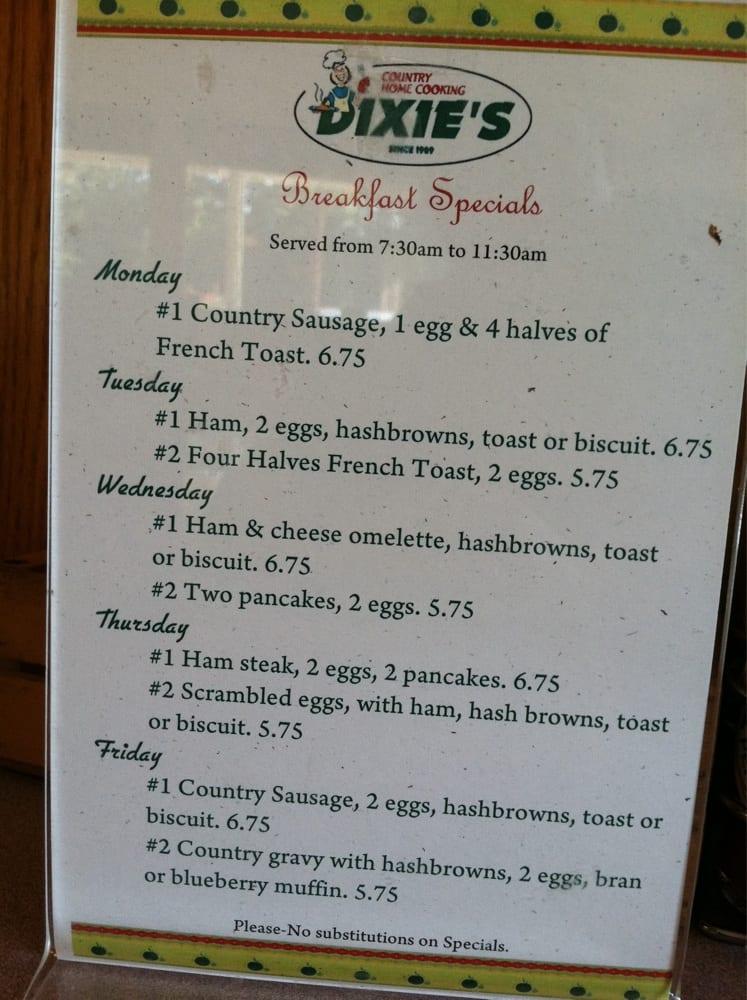 COUNTRY
HOME COOKING
DIXIE'S
SINCE 1989
Breakfast Specials
Served from 7:30am to 11:30am
Monday
#1 Country Sausage, 1 egg & 4 halves of
French Toast. 6.75
Tuesday
#1 Ham, 2 eggs, hashbrowns, toast or biscuit. 6.75
#2 Four Halves French Toast, 2 eggs. 5.75
Wednesday
#1 Ham & cheese omelette, hashbrowns, toast
or biscuit. 6.75
#2 Two pancakes, 2 eggs. 5.75
Thursday
#1 Ham steak, 2 eggs, 2 pancakes. 6.75
#2 Scrambled eggs, with ham, hash browns, toast
or biscuit. 5.75
Friday
#1 Country Sausage, 2 eggs, hashbrowns, toast or
biscuit. 6.75
#2 Country gravy with hashbrowns, 2 eggs, bran
or blueberry muffin. 5.75
Please-No substitutions on Specials.